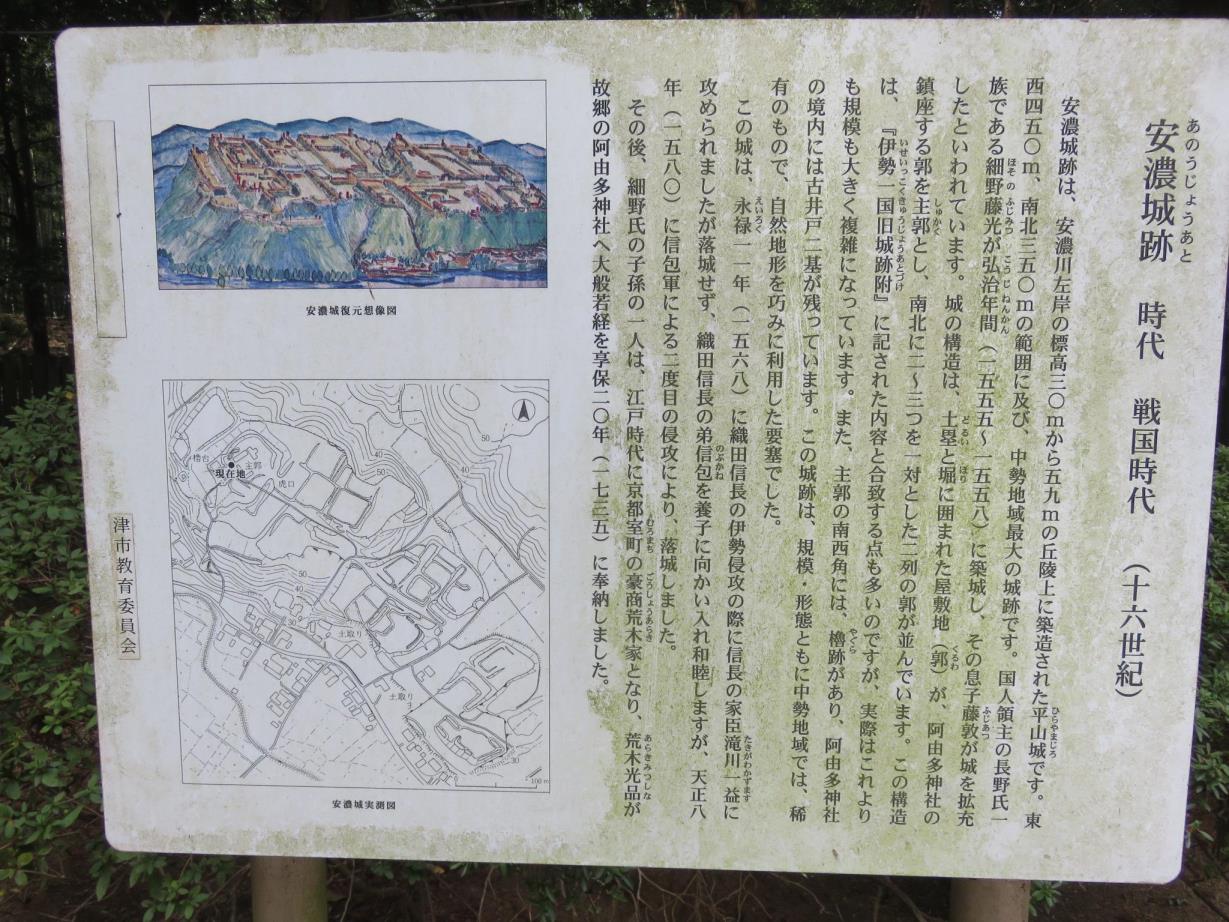 安濃城跡　時代　戦国時代　（十六世紀）
あのうじょうあと
安濃城跡は、安濃川左岸の標高三〇ｍから五九ｍの丘陵上に築造された平山城です。東
ひらやまじろ
西四五〇ｍ、南北三五〇ｍの範囲に及び、中勢地域最大の城跡です。国人領主の長野氏一
族である細野藤光が弘治年間（一五五五～一五五八）に築城し、その息子藤敦が城を拡充
ほそのふじみつ　こうじねんかん　ふじあつ
したといわれています。城の構造は、土塁と堀に囲まれた屋敷地（郭）が、阿由多神社の
どるい　ほり　くるわ
鎮座する郭を主郭とし、南北に二～三つを一対とした二列の郭が並んでいます。この構造
しゅかく
は、『伊勢一国旧城跡附』に記された内容と合致する点も多いのですが、実際はこれより
いせいっこくきゅうじょうあとづけ
も規模も大きく複雑になっています。また、主郭の南西角には、櫓跡があり、阿由多神社
やぐら
の境内には古井戸二基が残っています。この城跡は、規模・形態ともに中勢地域では、稀
有のもので、自然地形を巧みに利用した要塞でした。
この城は、永禄一一年（一五六八）に織田信長の伊勢侵攻の際に信長の家臣滝川一益に
えいろく　たきがわかずます
攻められましたが落城せず、織田信長の弟信包を養子に向かい入れ和睦しますが、天正八
のぶかね
年（一五八〇）に信包軍による二度目の侵攻により、落城しました。
その後、細野氏の子孫の一人は、江戸時代に京都室町の豪商荒木家となり、荒木光品が
むろまち　ごうしょうあらき　あらきみつしな
故郷の阿由多神社へ大般若経を享保二〇年（一七三五）に奉納しました。
安濃城復元想像図
50
50
40
40
櫓台
主郭
現在地
虎口
50
40
30
土取り
土取り
30
100m
安濃城実測図
津市教育委員会